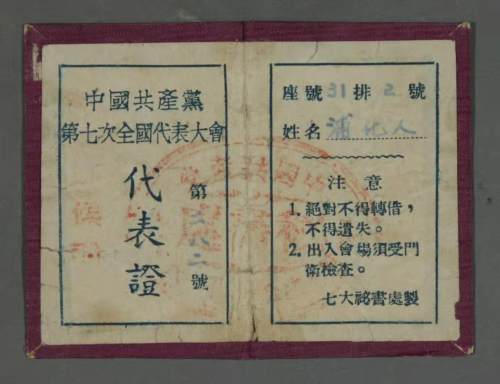 中國共產黨
第七次全國代表大會
代表證
第
二號
座號31排2號
姓名 浦化人
注意
1. 絕對不得轉借，
不得遺失。
2. 出入會場須受門
衛檢查。
七大祕書處製